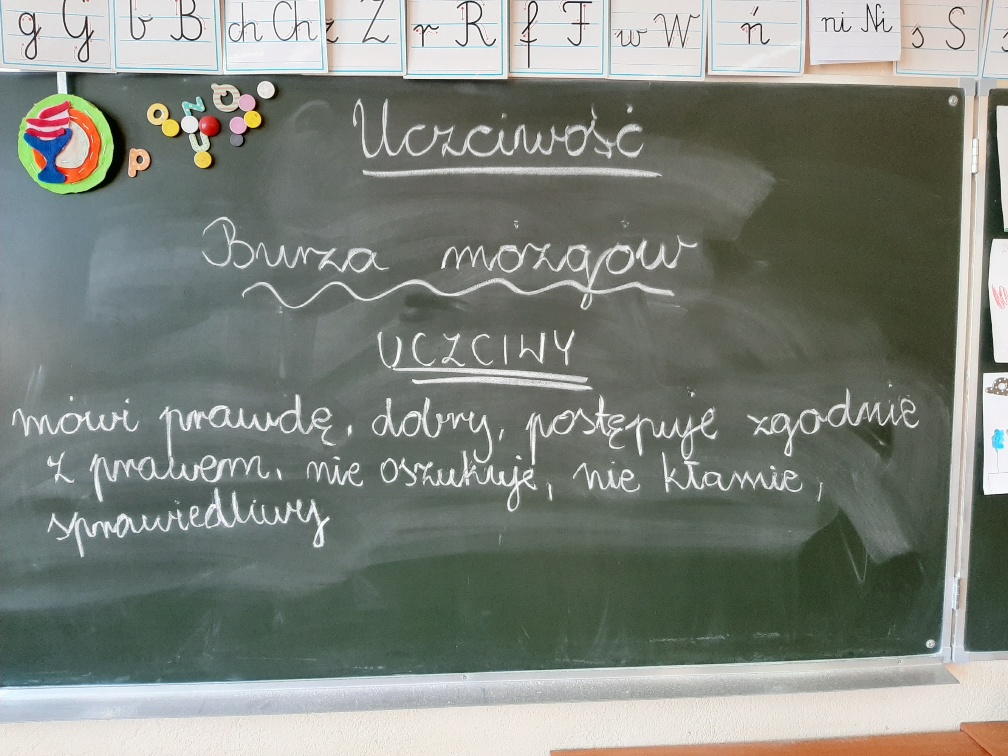 g G b B ch Ch z Z r R f F w W ń ni Ni s S
Uczciwość
Burza mózgów
UCZCIWY
mówi prawdę, dobry, postępuje zgodnie
z prawem, nie oszukuje, nie kłamie,
sprawiedliwy